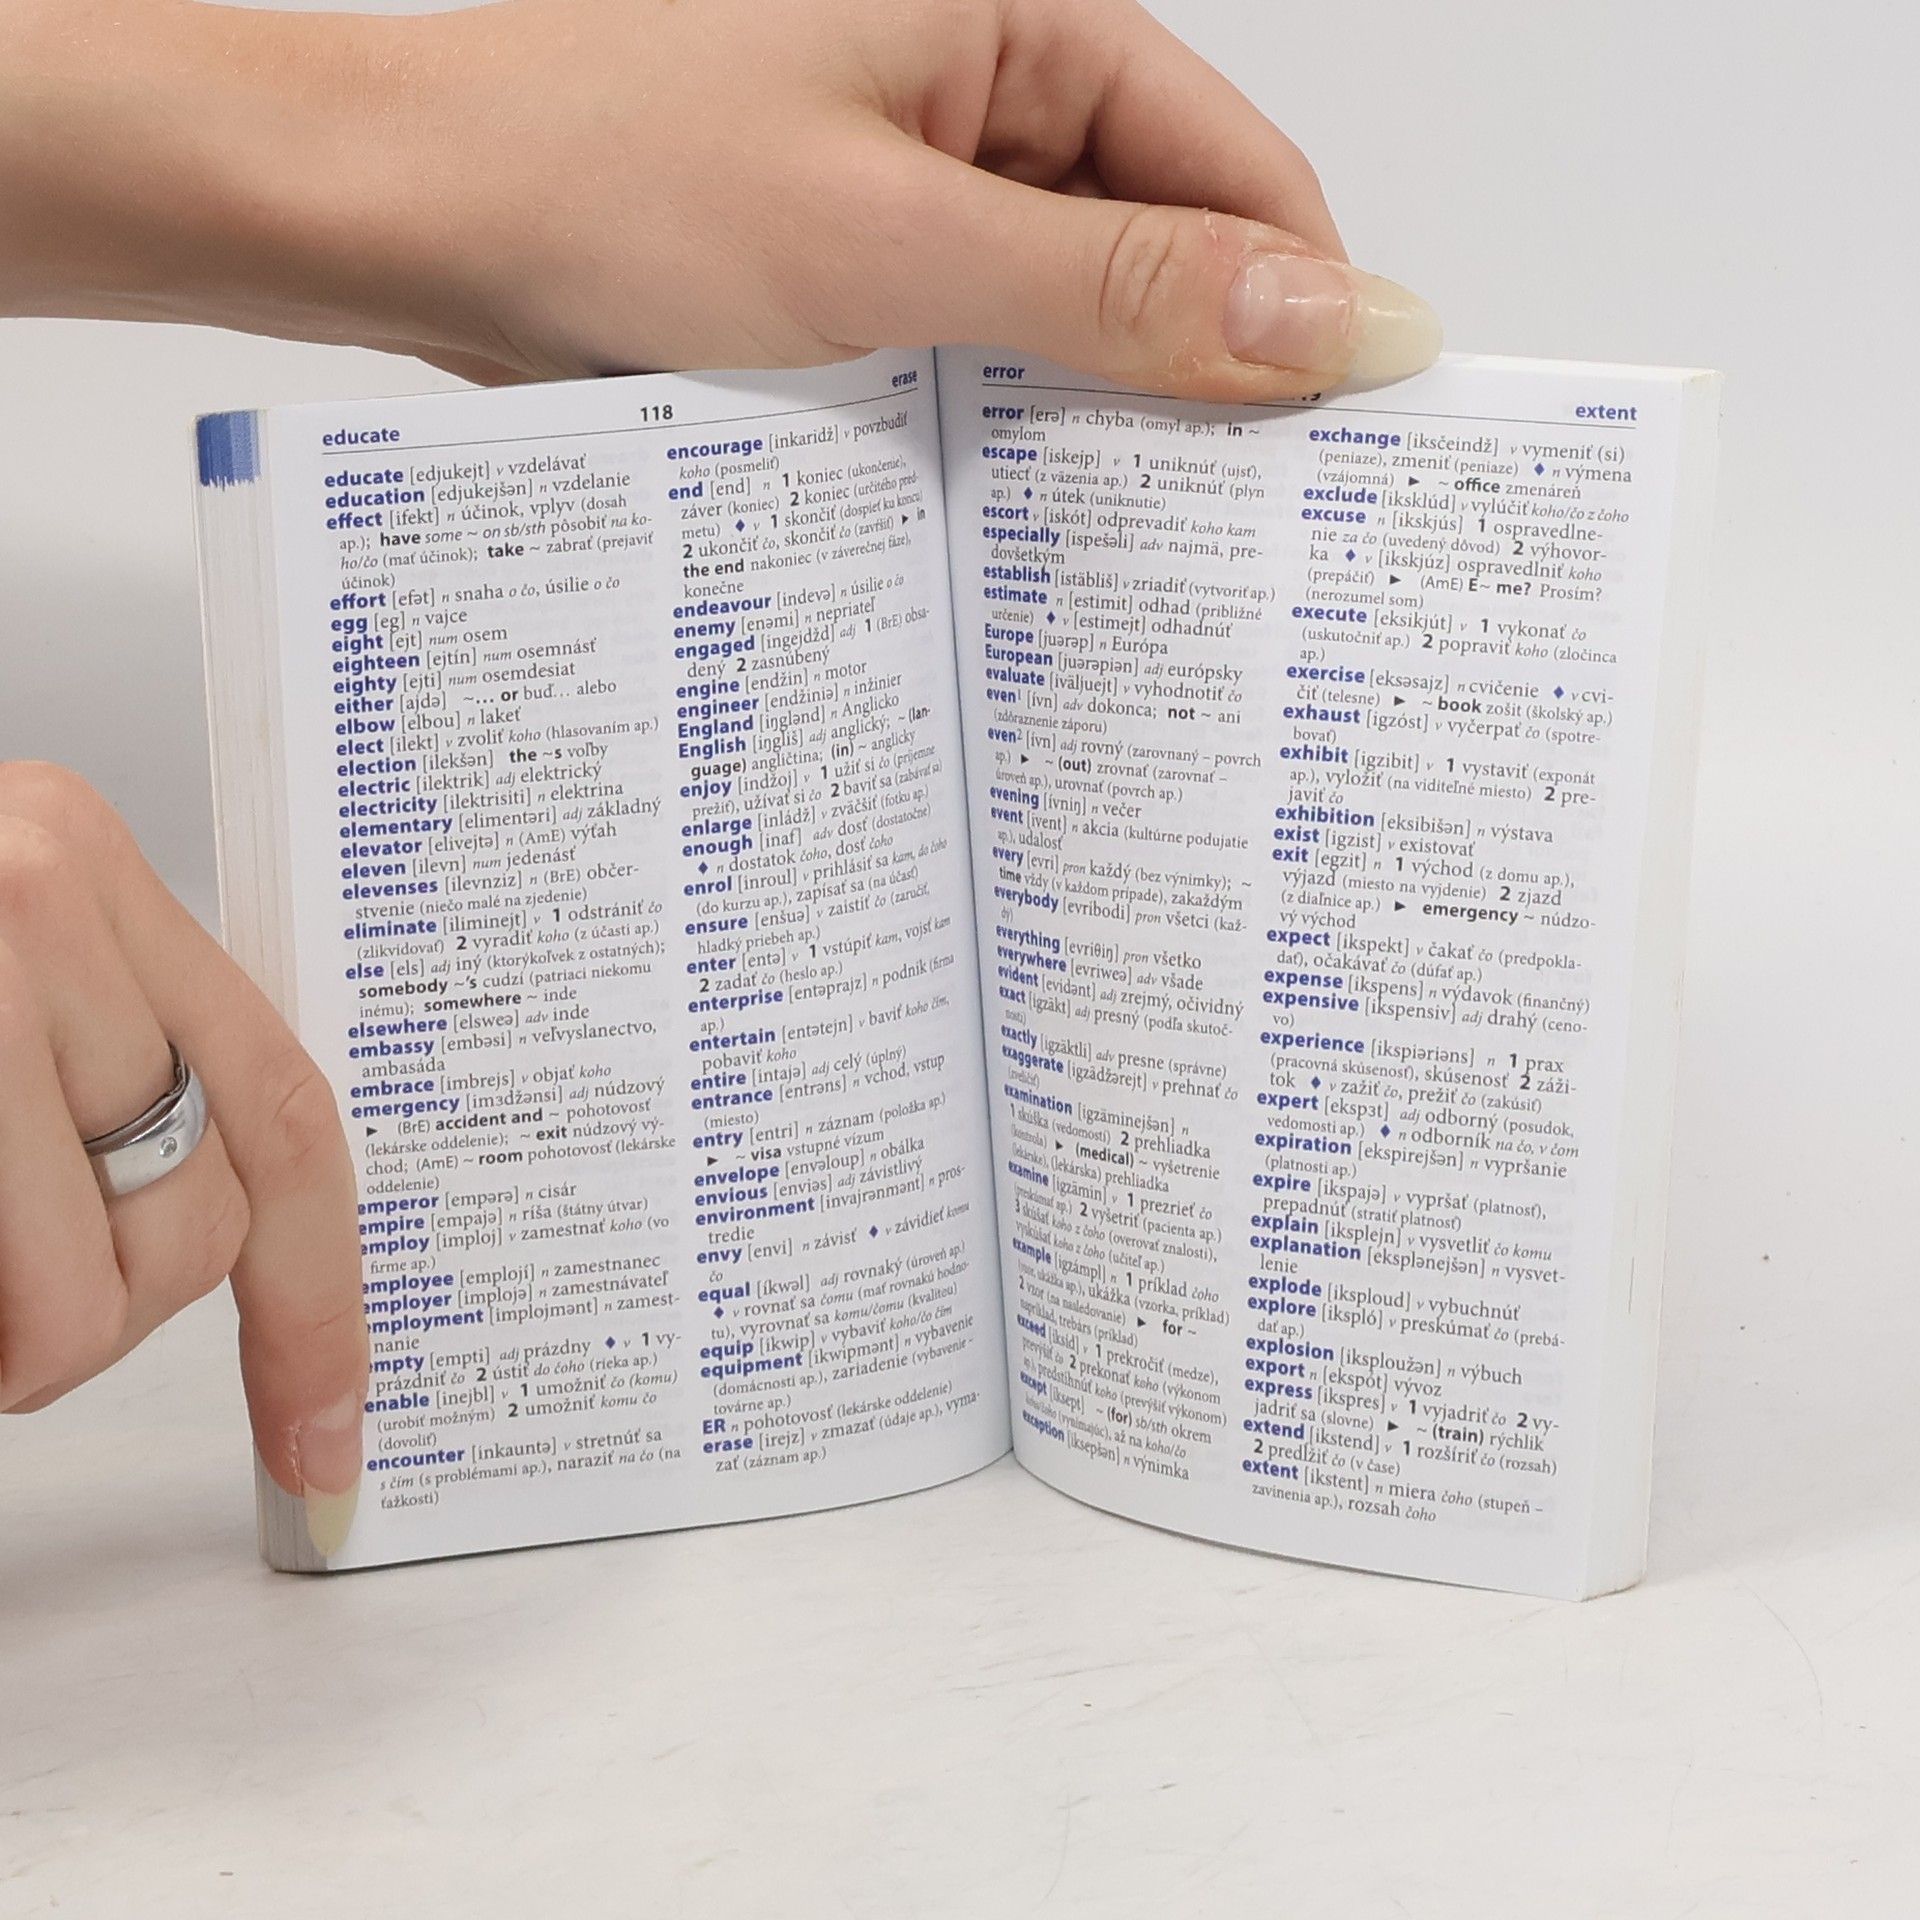 educate
118
erase
educate [edjukejt] v vzdelávať
education [edjukejšən] n vzdelanie
effect [ifekt] n účinok, vplyv (dosah
ap.); have some ~ on sb/sth pôsobiť na ko-
ho/čo (mať účinok); take ~ zabrať (prejaviť
účinok)
effort [efət] n snaha o čo, úsilie o čo
egg [eg] n vajce
eight [ejt] num osem
eighteen [ejtín] num osemnásť
eighty [ejti] num osemdesiat
either [ajdə] ~... or buď... alebo
elbow [elbou] n lakeť
elect [ilekt] v zvoliť koho (hlasovaním ap.)
election [ilekšən] the ~s voľby
electric [ilektrik] adj elektrický
electricity [ilektrisiti] n elektrina
elementary [elimentəri] adj základný
elevator [elivejtə] n (AmE) výťah
eleven [ilevn] num jedenásť
elevenses [ilevnziz] n (BrE) občer-
stvenie (niečo malé na zjedenie)
eliminate [iliminejt] v 1 odstrániť čo
(zlikvidovať) 2 vyradiť koho (z účasti ap.)
else [els] adj iný (ktorýkoľvek z ostatných);
somebody ~'s cudzí (patriaci niekomu
inému); somewhere ~ inde
elsewhere [elsweə] adv inde
embassy [embəsi] n veľvyslanectvo,
ambasáda
embrace [imbrejs] v objať koho
emergency [imɜdžənsi] adj núdzový
► (BrE) accident and ~ pohotovosť
(lekárske oddelenie); ~ exit núdzový vý-
chod; (AmE) ~ room pohotovosť (lekárske
oddelenie)
emperor [empərə] n cisár
empire [empajə] n ríša (štátny útvar)
employ [imploj] v zamestnať koho (vo
firme ap.)
employee [emplojí] n zamestnanec
employer [implojə] n zamestnávateľ
employment [implojmənt] n zamest-
nanie
empty [empti] adj prázdny ♦ v 1 vy-
prázdniť čo 2 ústiť do čoho (rieka ap.)
enable [inejbl] v 1 umožniť čo (komu)
(urobiť možným) 2 umožniť komu čo
(dovoliť)
encounter [inkauntə] v stretnúť sa
s čím (s problémami ap.), naraziť na čo (na
ťažkosti)
encourage [inkaridž] v povzbudiť
koho (posmeliť)
end [end] n 1 koniec (ukončenie),
záver (koniec) 2 koniec (určitého pred-
metu) ♦ v 1 skončiť (dospieť ku koncu)
2 ukončiť čo, skončiť čo (zavŕšiť) ► in
the end nakoniec (v záverečnej fáze),
konečne
endeavour [indevə] n úsilie o čo
enemy [enəmi] n nepriateľ
engaged [ingejdžd] adj 1 (BrE) obsa-
dený 2 zasnúbený
engine [endžin] n motor
engineer [endžiniə] n inžinier
England [iŋglənd] n Anglicko
English [iŋgliš] adj anglický; ~ (lan-
guage) angličtina; (in) ~ anglicky
enjoy [indžoj] v 1 užiť si čo (príjemne
prežiť), užívať si čo 2 baviť sa (zabávať sa)
enlarge [inládž] v zväčšiť (fotku ap.)
enough [inaf] adv dosť (dostatočne)
♦ n dostatok čoho, dosť čoho
enrol [inroul] v prihlásiť sa kam, do čoho
(do kurzu ap.), zapísať sa (na účasť)
ensure [enšuə] v zaistiť čo (zaručiť,
hladký priebeh ap.)
enter [entə] v 1 vstúpiť kam, vojsť kam
2 zadať čo (heslo ap.)
enterprise [entəprajz] n podnik (firma
ap.)
entertain [entətejn] v baviť koho čím,
pobaviť koho
entire [intajə] adj celý (úplný)
entrance [entrəns] n vchod, vstup
(miesto)
entry [entri] n záznam (položka ap.)
► ~ visa vstupné vízum
envelope [envəloup] n obálka
envious [enviəs] adj závistlivý
environment [invajrənmənt] n pros-
tredie
envy [envi] n závisť ♦ v závidieť komu
čo
equal [íkwəl] adj rovnaký (úroveň ap.)
♦ v rovnať sa čomu (mať rovnakú hodno-
tu), vyrovnať sa komu/čomu (kvalitou)
equip [ikwip] v vybaviť koho/čo čím
equipment [ikwipmənt] n vybavenie
(domácnosti ap.), zariadenie (vybavenie –
továrne ap.)
ER n pohotovosť (lekárske oddelenie)
erase [irejz] v zmazať (údaje ap.), vyma-
zať (záznam ap.)
error
extent
error [erə] n chyba (omyl ap.); in ~
omylom
escape [iskejp] v 1 uniknúť (ujsť),
utiecť (z väzenia ap.) 2 uniknúť (plyn
ap.) ♦ n útek (uniknutie)
escort v [iskót] odprevadiť koho kam
especially [ispešəli] adv najmä, pre-
dovšetkým
establish [istäbliš] v zriadiť (vytvoriť ap.)
estimate n [estimit] odhad (približné
určenie) ♦ v [estimejt] odhadnúť
Europe [juərəp] n Európa
European [juərəpiən] adj európsky
evaluate [iväljuejt] v vyhodnotiť čo
even¹ [ívn] adv dokonca; not ~ ani
(zdôraznenie záporu)
even² [ívn] adj rovný (zarovnaný – povrch
ap.) ► ~ (out) zrovnať (zarovnať –
úroveň ap.), urovnať (povrch ap.)
evening [ívniŋ] n večer
event [ivent] n akcia (kultúrne podujatie
ap.), udalosť
every [evri] pron každý (bez výnimky); ~
time vždy (v každom prípade), zakaždým
everybody [evribodi] pron všetci (kaž-
dý)
everything [evriθiŋ] pron všetko
everywhere [evriweə] adv všade
evident [evidənt] adj zrejmý, očividný
exact [igzäkt] adj presný (podľa skutoč-
nosti)
exactly [igzäktli] adv presne (správne)
exaggerate [igzädžərejt] v prehnať čo
(zveličiť)
examination [igzäminejšən] n
1 skúška (vedomostí) 2 prehliadka
(kontrola) ► (medical) ~ vyšetrenie
(lekárske), (lekárska) prehliadka
examine [igzämin] v 1 prezrieť čo
(preskúmať ap.) 2 vyšetriť (pacienta ap.)
3 skúšať koho z čoho (overovať znalosti),
vyskúšať koho z čoho (učiteľ ap.)
example [igzámpl] n 1 príklad čoho
(vzor, ukážka ap.), ukážka (vzorka, príklad)
2 vzor (na nasledovanie) ► for ~
napríklad, trebárs (príklad)
exceed [iksíd] v 1 prekročiť (medze),
prevýšiť čo 2 prekonať koho (výkonom
ap.), predstihnúť koho (prevýšiť výkonom)
except [iksept] ~ (for) sb/sth okrem
koho/čoho (vynímajúc), až na koho/čo
exception [iksepšən] n výnimka
exchange [iksčeindž] v vymeniť (si)
(peniaze), zmeniť (peniaze) ♦ n výmena
(vzájomná) ► ~ office zmenáreň
exclude [iksklúd] v vylúčiť koho/čo z čoho
excuse n [ikskjús] 1 ospravedlne-
nie za čo (uvedený dôvod) 2 výhovor-
ka ♦ v [ikskjúz] ospravedlniť koho
(prepáčiť) ► (AmE) E~ me? Prosím?
(nerozumel som)
execute [eksikjút] v 1 vykonať čo
(uskutočniť ap.) 2 popraviť koho (zločinca
ap.)
exercise [eksəsajz] n cvičenie ♦ v cvi-
čiť (telesne) ► ~ book zošit (školský ap.)
exhaust [igzóst] v vyčerpať čo (spotre-
bovať)
exhibit [igzibit] v 1 vystaviť (exponát
ap.), vyložiť (na viditeľné miesto) 2 pre-
javiť čo
exhibition [eksibišən] n výstava
exist [igzist] v existovať
exit [egzit] n 1 východ (z domu ap.),
výjazd (miesto na vyjdenie) 2 zjazd
(z diaľnice ap.) ► emergency ~ núdzo-
vý východ
expect [ikspekt] v čakať čo (predpokla-
dať), očakávať čo (dúfať ap.)
expense [ikspens] n výdavok (finančný)
expensive [ikspensiv] adj drahý (ceno-
vo)
experience [ikspiəriəns] n 1 prax
(pracovná skúsenosť), skúsenosť 2 záži-
tok ♦ v zažiť čo, prežiť čo (zakúsiť)
expert [ekspɜt] adj odborný (posudok,
vedomosti ap.) ♦ n odborník na čo, v čom
expiration [ekspirejšən] n vypršanie
(platnosti ap.)
expire [ikspajə] v vypršať (platnosť),
prepadnúť (stratiť platnosť)
explain [iksplejn] v vysvetliť čo komu
explanation [eksplənejšən] n vysvet-
lenie
explode [iksploud] v vybuchnúť
explore [iksplό] v preskúmať čo (prebá-
dať ap.)
explosion [iksploužən] n výbuch
export n [ekspót] vývoz
express [ikspres] v 1 vyjadriť čo 2 vy-
jadriť sa (slovne) ► ~ (train) rýchlik
extend [ikstend] v 1 rozšíriť čo (rozsah)
2 predĺžiť čo (v čase)
extent [ikstent] n miera čoho (stupeň –
zavinenia ap.), rozsah čoho